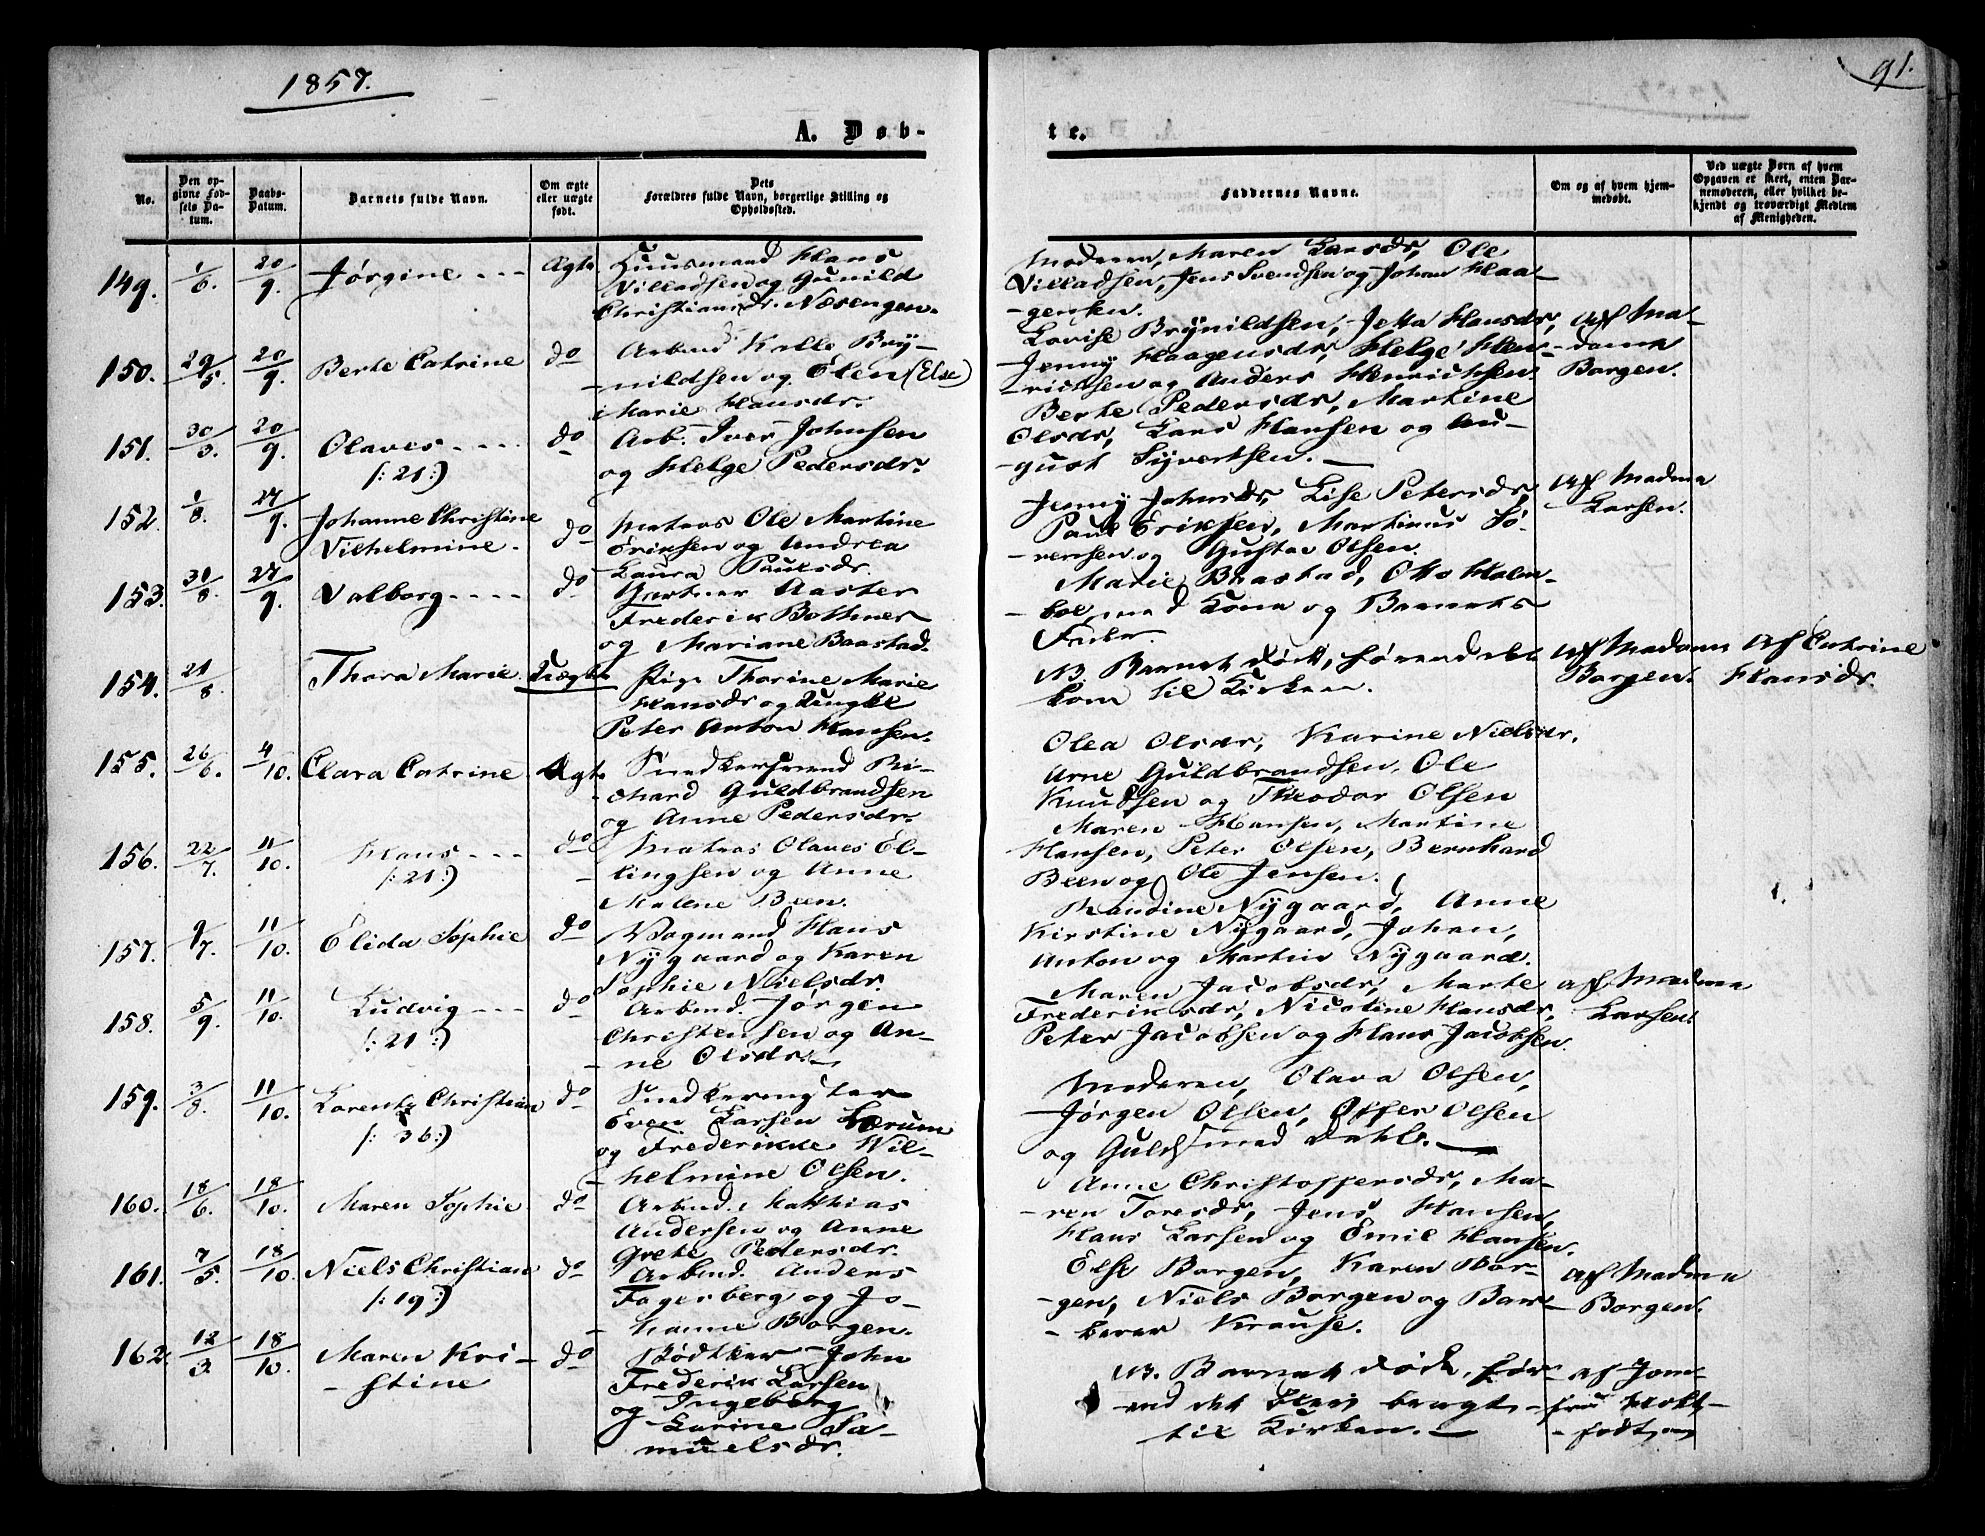 1857.
91.
A. Døb-
te.
No.
Den op-
givne Fød-
sels Da-
tum.
Daabs-
Datum.
Barnets fulde Navn.
Om ægte
eller uægte
født.
Dets
Forældres fulde Navn, borgerlige Stilling og
Opholdssted.
Faddernes Navne.
Om og af hvem hjem-
medøbt.
Ved uægte Børn af hvem
Opgaven er skeet, enten Bar-
nemoderen, eller hvilket be-
kjendt og troværdigt Medlem
af Menigheden.
149. 1/6. 20/9. Jørgine Ægte
Huusmand Hans
Villadsen og Gunild
Christiansdr. Næsengen.
Moderen, Maren Larsdr, Ole
Villadsen, Jens Svendsen og Johan Haa-
-gensen.
150. 29/5. 20/9. Berte Catrine do
Arbmd Kelle Bry-
-nildsen og Elen (Else)
Marie Hansdr.
Lovise Brynildsen, Jetta Hansdr,
Jenny Haagensdr, Helge Hen-
-richsen og Anders Henrichsen.
af Ma-
-dame
Borgen.
151. 30/3. 20/9. Olaves
/: 21 :/
do
Arb. Iver Johnsen
og Helge Pedersdr.
Berte Pedersdr, Martine
Olsdr, Lars Hansen og Au-
-gust Syvertsen.
152. 1/8. 27/9. Johanne Christine
Vilhelmine.
do
Matros Ole Martine
Eriksen og Andrea
Laura Paulsdr.
Jenny Johnsdr, Lise Petersdr,
Paul Eriksen, Martinus Sø-
-rensen og Gustav Olsen.
af Madme
Larsen.
153. 30/8. 27/9. Valborg do
Gartner Aaster
Frederik Bothner
og Mariane Baastad.
Marie Baastad, Otto Holm-
-boe, med Kone og Barnets
Fader.
154. 21/8 Thora Marie. Uægte
Pige Thorine Marie
Hansdr og Ungkl
Peter Anton Hansen.
NB. Barnet døde, førend det
kom til Kirken.
af Madam
Borgen.
af Catrine
Hansdr.
155. 26/6. 4/10. Clara Catrine Ægte
Snedkersvend Ri-
-chard Guldbrandsen
og Anne Pedersdr.
Olea Olsdr, Karine Nielsdr.
Arne Guldbrandsen, Ole
Knudsen og Theodor Olsen
156. 22/7. 11/10. Hans
/: 21 :/
do
Matros Olaves El-
-lingsen og Anne
Malene Been.
Maren Hansen, Martine
Hansen, Peter Olsen, Bernhard
Been og Ole Jensen.
157. 9/7. 11/10. Elida Sophie do
Vogmand Hans
Nygaard og Karen
Sophie Nielsdr.
Randine Nygaard, Anne
Kirstine Nygaard, Johan,
Anton og Martin Nygaard.
158. 5/9. 11/10. Ludvig
/: 21 :/
do
Arbmd. Jørgen
Christensen og An-
-ne Olsdr.
Maren Jacobsdr, Marte
Frederiksdr, Nicoline Hansdr,
Peter Jacobsen og Hans Jacobsen.
af Madme
Larsen.
159. 3/8. 11/10. Lorentz Christian
/: 36 :/
do
Snedkermester
Even Larsen Lærum
og Frederikke Wil-
-helmine Olsen.
Moderen, Olava Olsen,
Jørgen Olsen, Offer Olsen
og Guldsmed Dahls.
160. 18/6. 18/10. Maren Sophie do
Arbmd. Matthias
Andersen og Anne
Grete Pedersdr.
Anne Christoffersdr, Ma-
-ren Toresdr, Jens Hansen,
Hans Larsen og Emil Hansen.
161. 7/5. 18/10. Niels Christian
/: 19 :/
do
Arbmd. Anders
Fagerberg og Jo-
-hanne Borgen.
Else Borgen, Karen Bor-
-gen, Niels Borgen og Bar-
-berer Krause.
af Madme
Borgen.
162. 12/3. 18/10. Maren Kri-
-stine
do
Bødtker John
Frederik Larsen
og Ingeborg
Larine Sa-
muelsdr.
NB. Barnet døde, før-
-end det blev bragt
til Kirken.
af Jom-
-fru Holt-